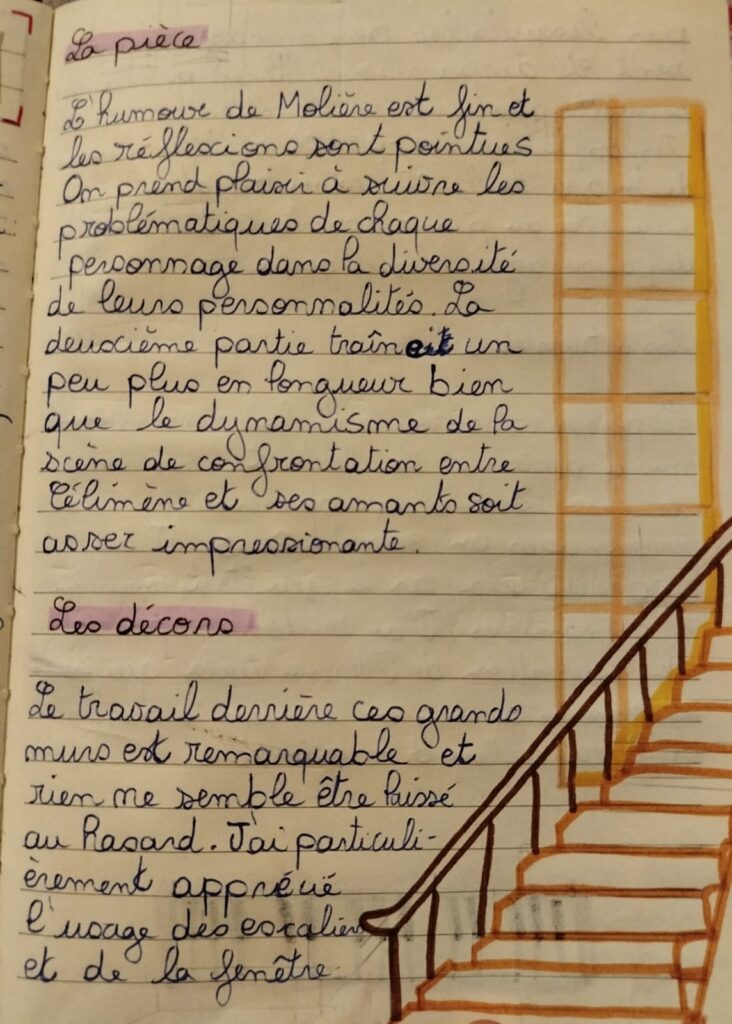 La pièce
L'humour de Molière est fin et
les réflexions sont pointues
On prend plaisir à suivre les
problématiques de chaque
personnage dans la diversité
de leurs personnalités. La
deuxième partie traînait un
peu plus en longueur bien
que le dynamisme de la
scène de confrontation entre
Célimène et ses amants soit
assez impressionante.
Les décors
Le travail derrière ces grands
murs est remarquable et
rien me semble être laissé
au hasard. J'ai particuli-
èrement apprécié
l'usage des escaliers
et de la fenêtre.